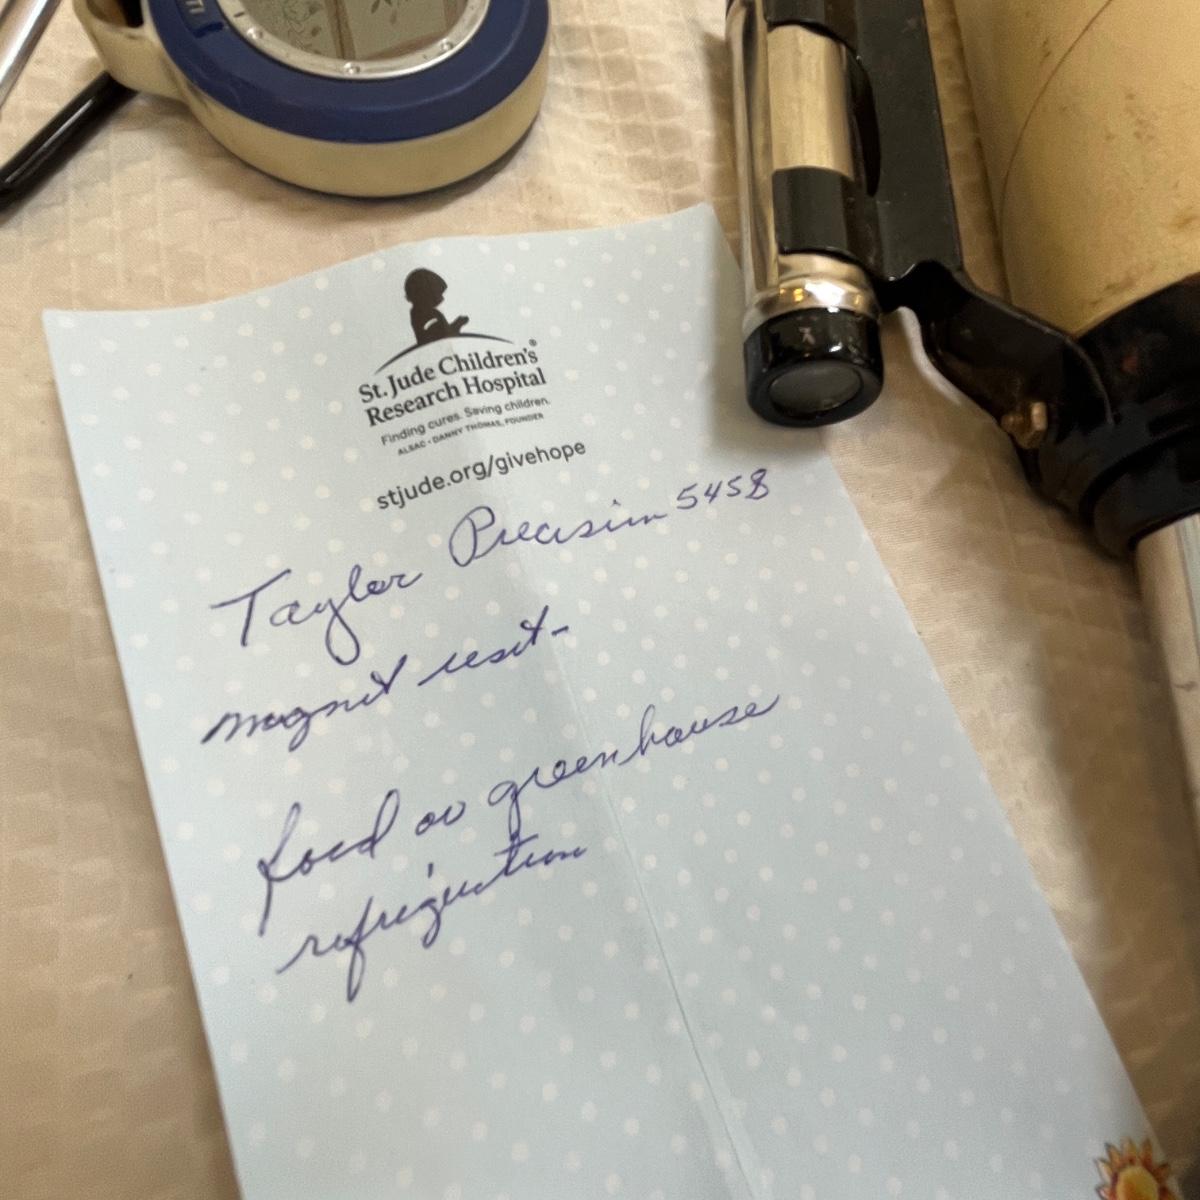 St. Jude Children's®
Research Hospital
Finding cures. Saving children.
ALSAC • DANNY THOMAS, FOUNDER
stjude.org/givehope
Taylor Precision 5458
magnet reset-
food or greenhouse
refrigeration